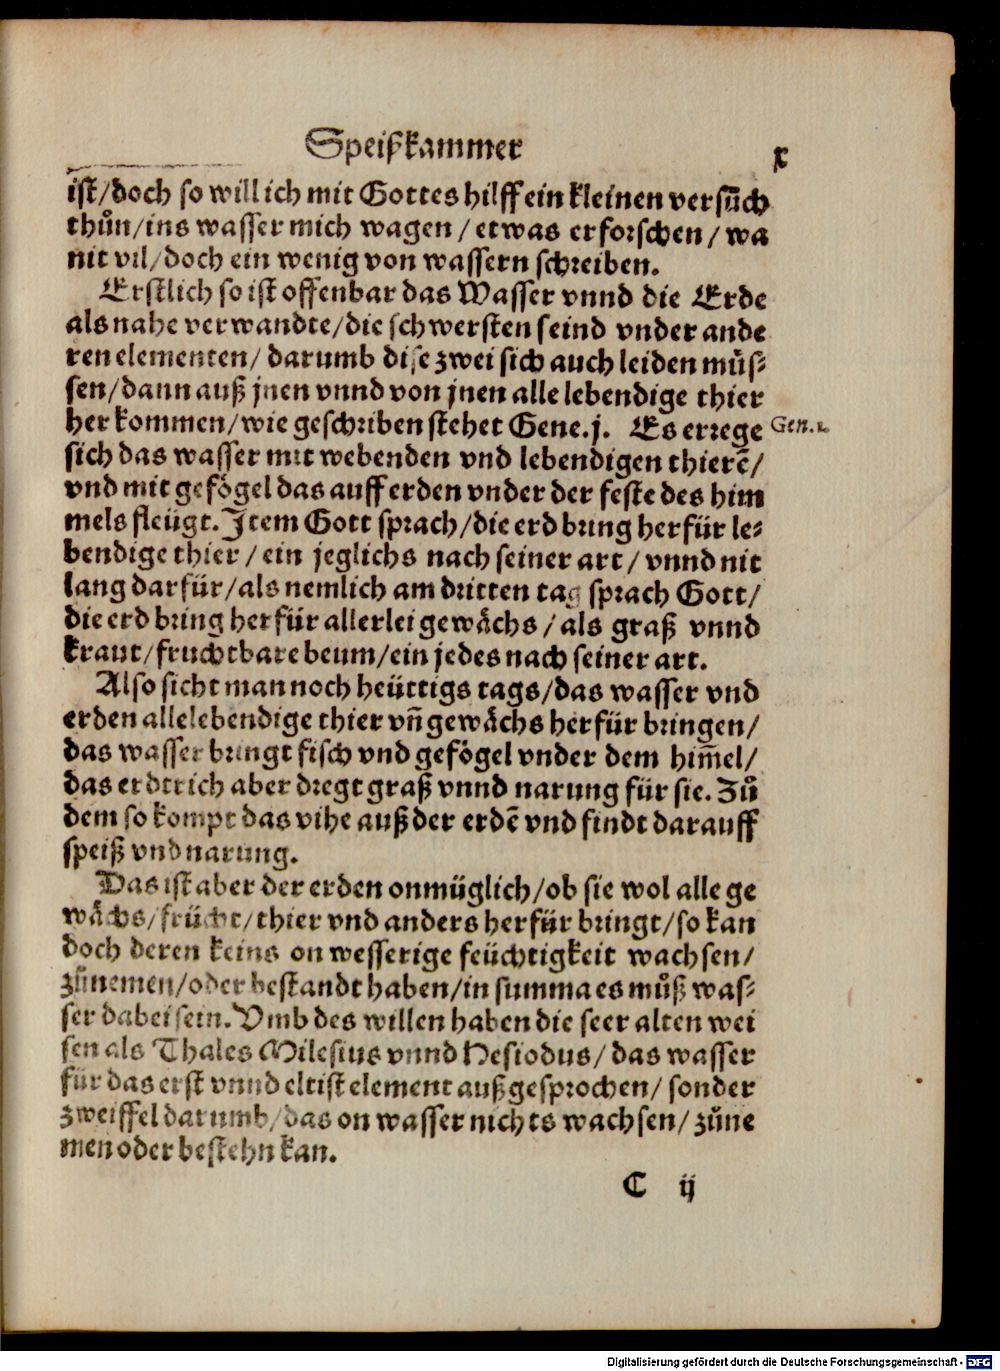 Speißkammer x
ist/doch so will ich mit Gottes hilff ein kleinen versůch
thůn/ins wasser mich wagen/etwas erforschen/wa
nit vil/doch ein wenig von wassern schreiben.
Erstlich so ist offenbar das Wasser vnnd die Erde
als nahe verwandte/die schwersten seind vnder ande
ren elementen/darumb dise zwei sich auch leiden müs⸗
sen/dann auß jnen vnnd von jnen alle lebendige thier
her kommen/wie geschriben stehet Gene.j. Es errege
Gen.1.
sich das wasser mit webenden vnd lebendigen thierē/
vnd mit gefögel das auff erden vnder der feste des him
mels fleügt. Item Gott sprach/die erd bring herfür le⸗
bendige thier/ein jeglichs nach seiner art/vnnd nit
lang darfür/als nemlich am dritten tag sprach Gott/
die erd bring herfür allerlei gewächs/als graß vnnd
kraut/fruchtbare beum/ein jedes nach seiner art.
Also sicht man noch heüttigs tags/das wasser vnd
erden alle lebendige thier vñ gewächs herfür bringen/
das wasser bringt fisch vnd gefögel vnder dem him̄el/
das erdtrich aber dregt graß vnnd narung für sie. Zů
dem so kompt das vihe auß der erdē vnd findt darauff
speiß vnd narung.
Das ist aber der erden onmüglich/ob sie wol alle ge
wächs/frücht/thier vnd anders herfür bringt/so kan
doch deren keins on wesserige feüchtigkeit wachsen/
zůnemen/oder bestandt haben/in summa es můß was⸗
ser dabei sein. Vmb des willen haben die seer alten wei
sen als Thales Milesius vnnd Hesiodus/das wasser
für das erst vnnd eltist element außgesprochen/sonder
zweiffel darumb/das on wasser nichts wachsen/zůne
men oder bestehn kan.
C ij
Digitalisierung gefördert durch die Deutsche Forschungsgemeinschaft - DFG